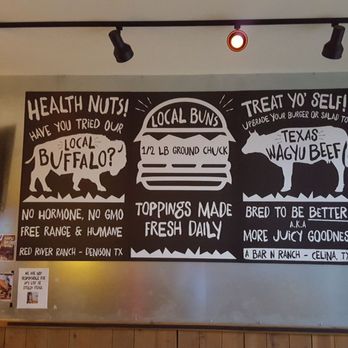 HEALTH NUTS!
HAVE YOU TRIED OUR
LOCAL
BUFFALO?
NO HORMONE, NO GMO
FREE RANGE & HUMANE
RED RIVER RANCH - DENISON TX
LOCAL BUNS
1/2 LB GROUND CHUCK
TOPPINGS MADE
FRESH DAILY
TREAT YO' SELF!
UPGRADE YOUR BURGER OR SALAD TO
TEXAS
WAGYU BEEF
BRED TO BE BETTER
A.K.A
MORE JUICY GOODNESS
A BAR N RANCH - CELINA, TX
WE ARE NOT
RESPONSIBLE FOR
ANY LOST OR
STOLEN ITEMS